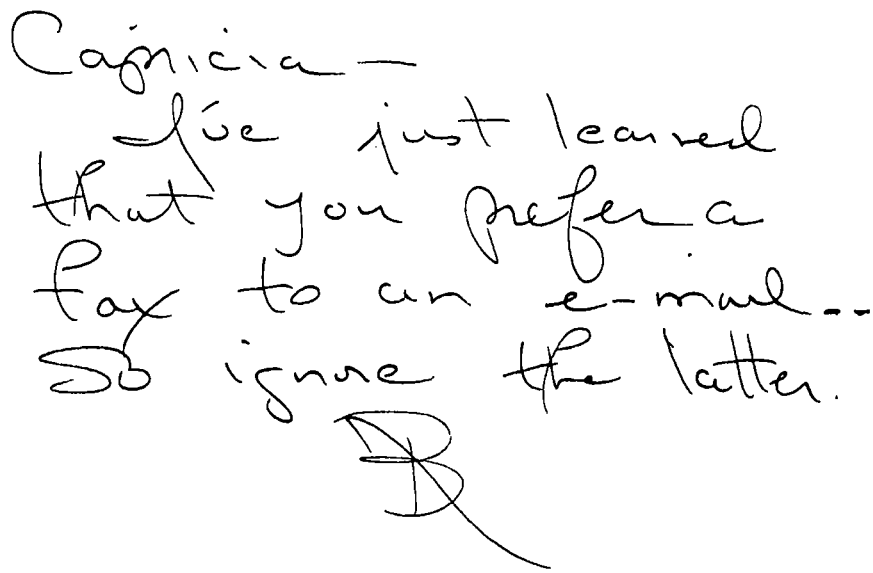 Capricia —
I've just learned
that you prefer a
fax to an e-mail...
So ignore the latter.